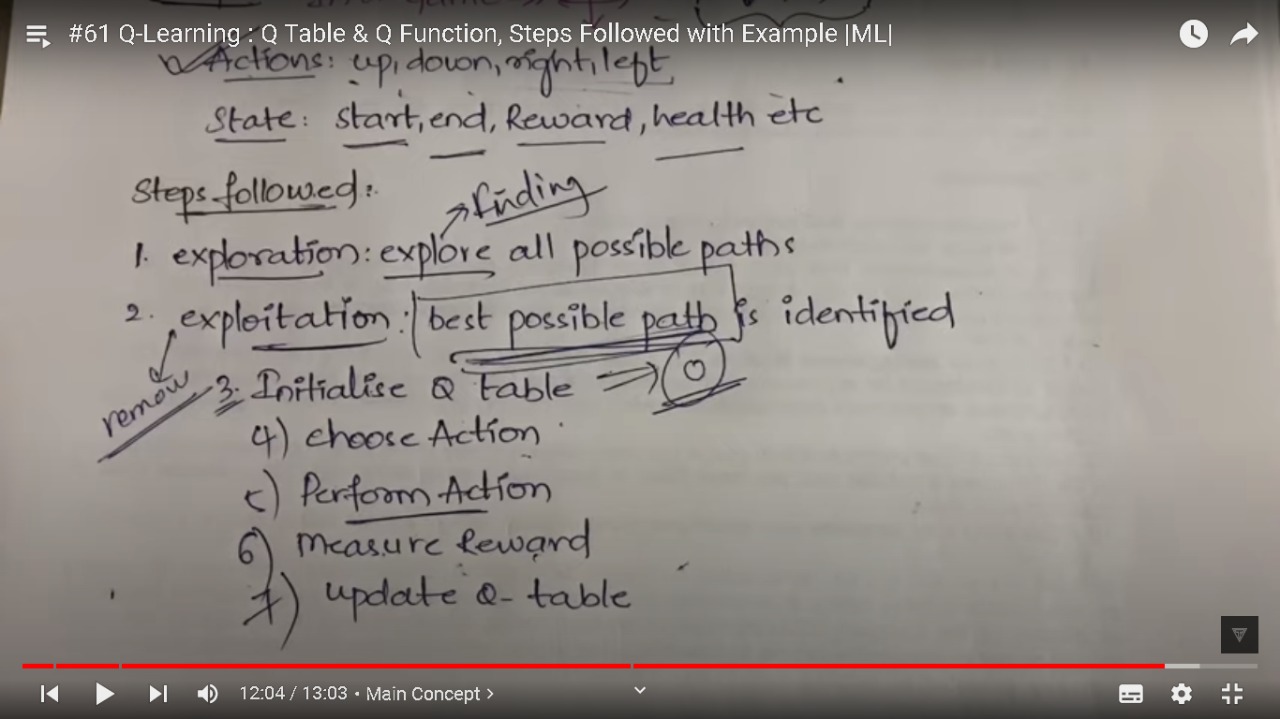 #61 Q-Learning : Q Table & Q Function, Steps Followed with Example |ML|
Actions: up, down, right, left
State: start, end, Reward, health etc
Steps followed:
finding
1. exploration: explore all possible paths
2. exploitation: best possible path is identified
3. Initialise Q table ⇒ 0
4) choose Action
5) Perform Action
6) Measure Reward
7) update Q-table
12:04 / 13:03 • Main Concept >